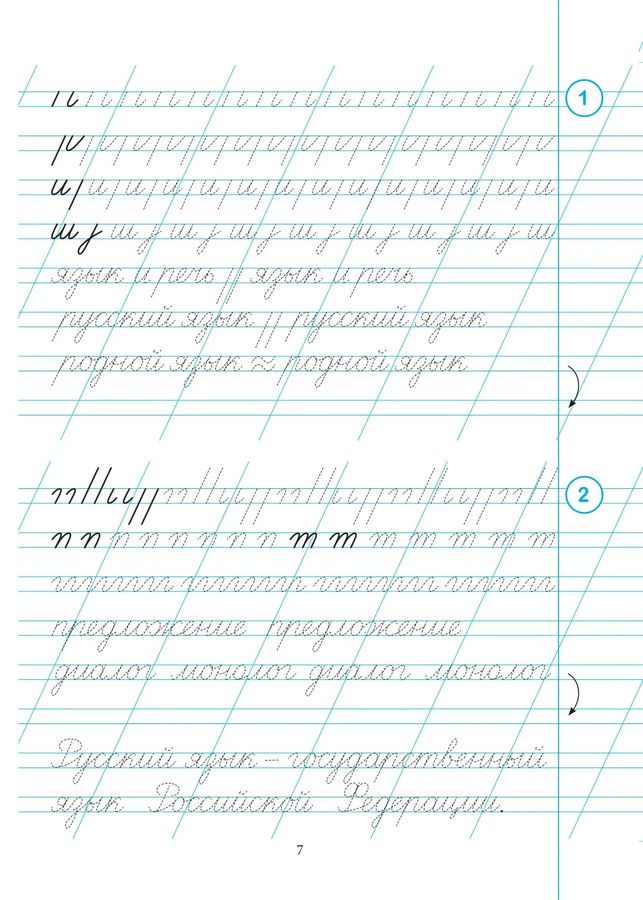 1
ш
язык и речь // язык и речь
русский язык // русский язык
родной язык ≈ родной язык
2
п п п п п п п п т т т т т т т
предложение предложение
диалог монолог диалог монолог
Русский язык – государственный
язык Российской Федерации.
7